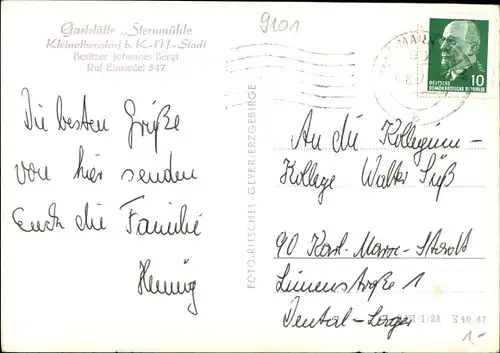 Gaststätte „Sternmühle
Kleinolbersdorf b. K.-M.-Stadt
Besitzer Johannes Bergt
Ruf Einsiedel 547
9101
DEUTSCHE
DEMOKRATISCHE REPUBLIK
10
Die besten Grüße
von hier senden
Euch die Familie
Hennig
FOTO-RITSCHEL-GEYER/ERZGEBIRGE
An die Kollegium-
Kollege Walter Süß
90 Karl-Marx-Stadt
straße 1
Dental-Lager
/1/28 40/67
1.-